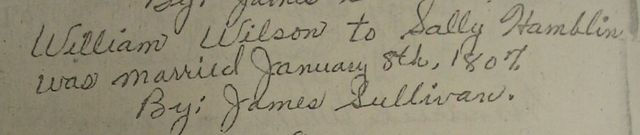 By: James
William Wilson to Sally Hamblin
was married January 8th, 1807
By: James Sullivan.